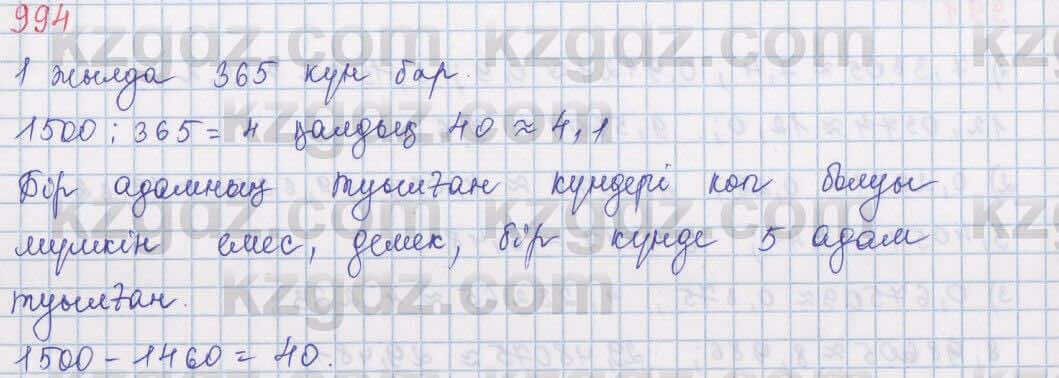 994
1 жылда 365 күн бар.
1500 : 365 = 4 қалдық 40 ≈ 4,1
Бір адамның туылған күндері көп болуы
мүмкін емес, демек, бір күнде 5 адам
туылған.
1500 - 1460 = 40.
kzgdz.com kzgdz.com
kzgdz.com kzgdz.com
kzgdz.com